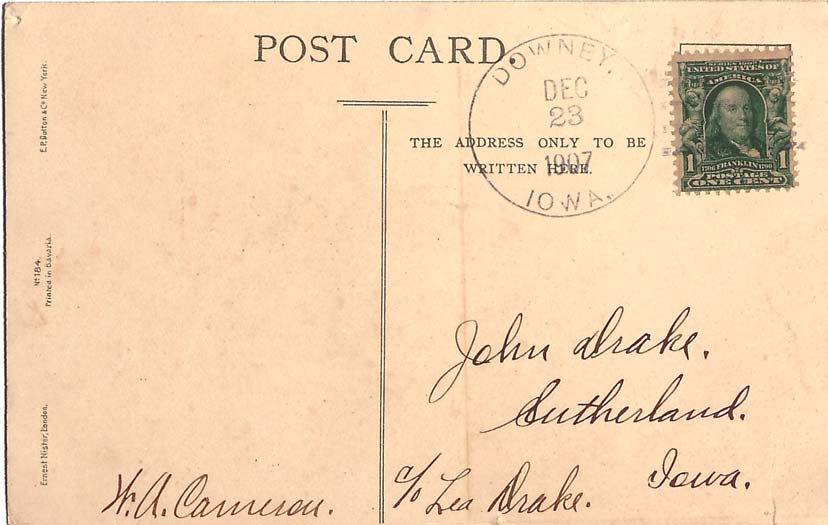 POST CARD.
DOWNEY,
DEC
23
1907
IOWA.
SERIES 1902
UNITED STATES OF
AMERICA
1 1706 FRANKLIN 1790 1
POSTAGE
ONE CENT
THE ADDRESS ONLY TO BE
WRITTEN HERE.
E.P. Dutton & Co. New York.
No 184.
Printed in Bavaria.
Ernest Nister, London.
John Drake.
Sutherland.
Iowa.
c/o Lea Drake.
W. A. Cameron.